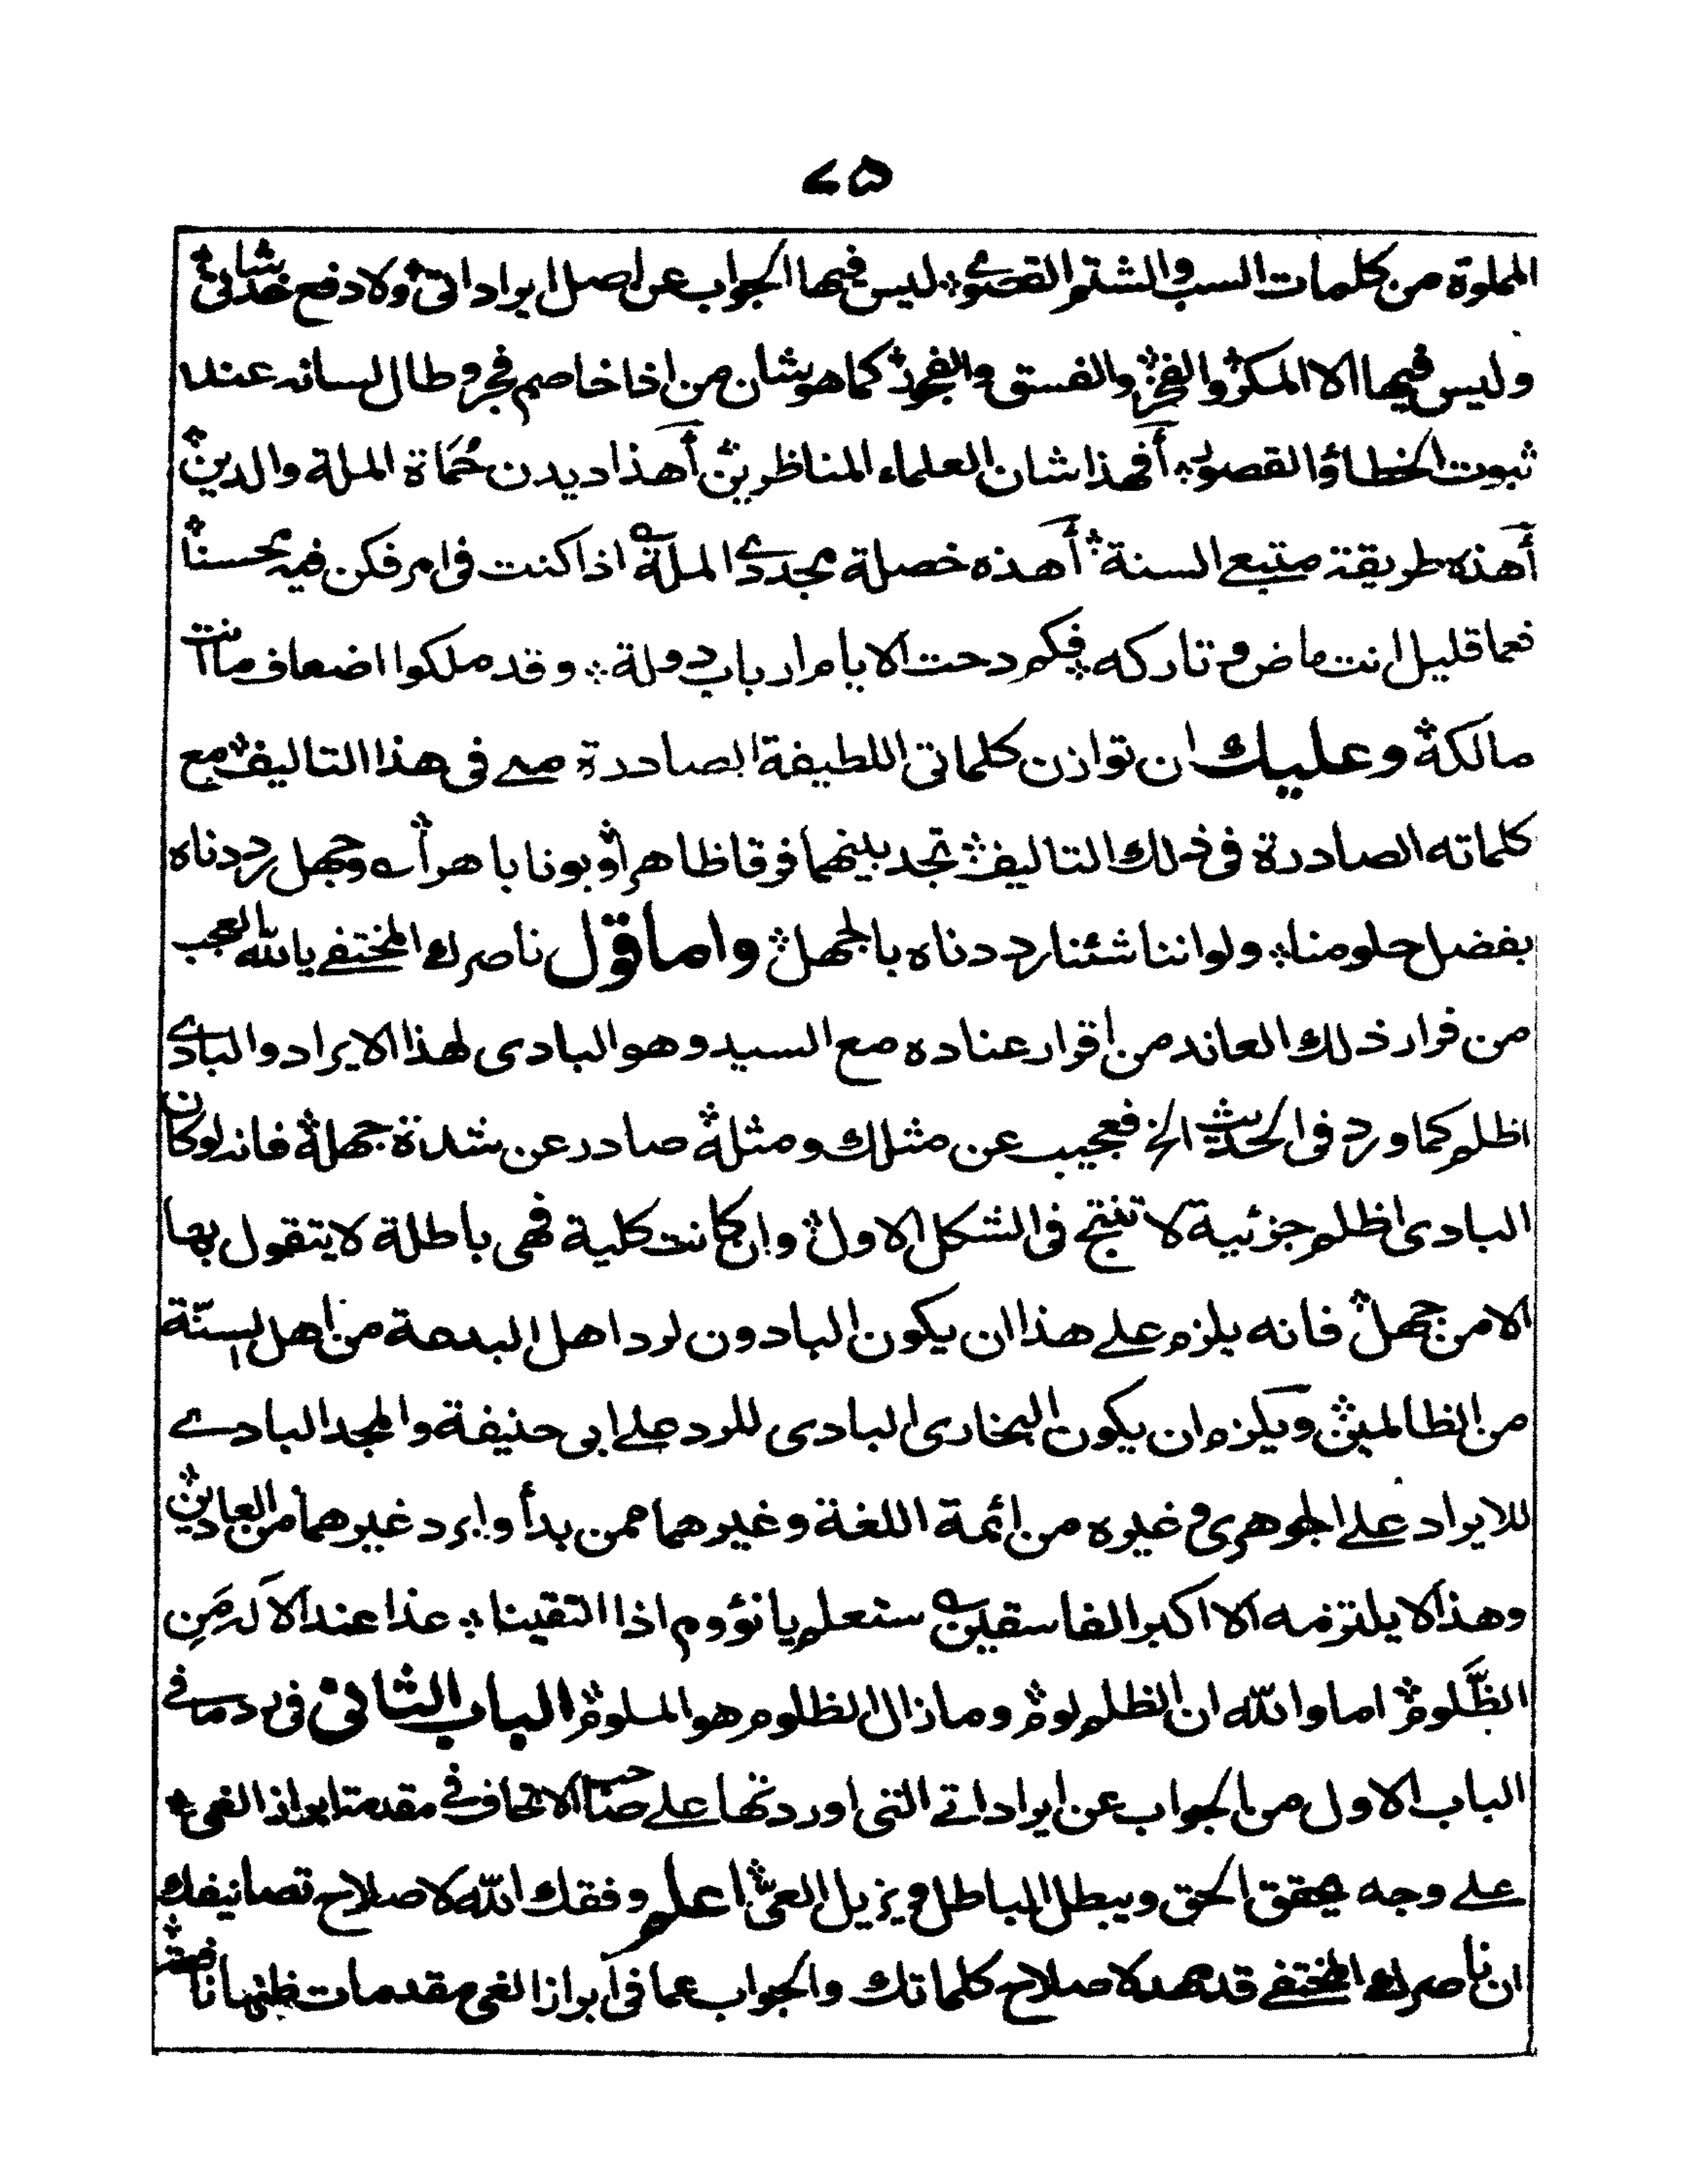 ٧٥
المملوة من كلمات السب والشتم القصوى ليس فيها الجواب عن اصل ايراداتى ولا دفع خدشاتى
وليس فيها الا المكر والفخر والفسق والفجور كما هو شان من اذا خاصم فجر وطال لسانه عند
ثبوت الخطاؤ القصور أفهذا شان العلماء المناظرين أهذا ديدن حُمَاة الملة والدين
أهذه طريقة متبع السنة أهذه خصلة مجددى الملة اذا كنت فى امر فكن فيه محسنا
فعما قليل انت ماض وتاركه فكم دحت الايام ارباب دولة وقد ملكوا اضعاف ما انت
مالكه وعليك ان توازن كلماتى اللطيفة الصادرة منى فى هذا التاليف مع
كلماته الصادرة فى ذلك التاليف تجد بينهما فرقا ظاهرا وبونا باهرا وجهل رددناه
بفضل حلومنا ولو اننا شئنا رددناه بالجهل واما قول ناصرك المختفى يا لله العجب
من فرار ذلك العاند من اقرار عناده مع السيد وهو البادى لهذا الايراد والبادى
اظلم كما ورد فى الحديث الخ فعجيب عن مثلك ومثله صادر عن شدة جهله فانه لو كان
البادى اظلم جزئية لا تنتج فى الشكل الاول وان كانت كلية فهى باطلة لا يتقول بها
الا من جهل فانه يلزم على هذا ان يكون البادون لرد اهل البدعة من اهل السنّة
من الظالمين ويلزم ان يكون البخارى البادى للرد على ابى حنيفة والمجد البادى
للايراد على الجوهرى وغيره من ائمة اللغة وغيرهما ممن بدأ وايرد غيرهما من العادين
وهذا لا يلتزمه الا اكبر الفاسقين ستعلم يا نؤوم اذا التقينا غدا عند الاله مَنِ
الظَّلوم اما والله ان الظلم لوم وما زال الظلوم هو الملوم الباب الثانى فى رد ما فى
الباب الاول من الجواب عن ايراداتى التى اوردتها على صاحب الاتحاف فى مقدمة ابراز الغى
على وجه يحقق الحق ويبطل الباطل ويزيل العىّ اعلم وفقك الله لاصلاح تصانيفك
ان ناصرك المختفى قد مهد لاصلاح كلماتك والجواب عما فى ابراز الغى مقدمات ظنها نافعة